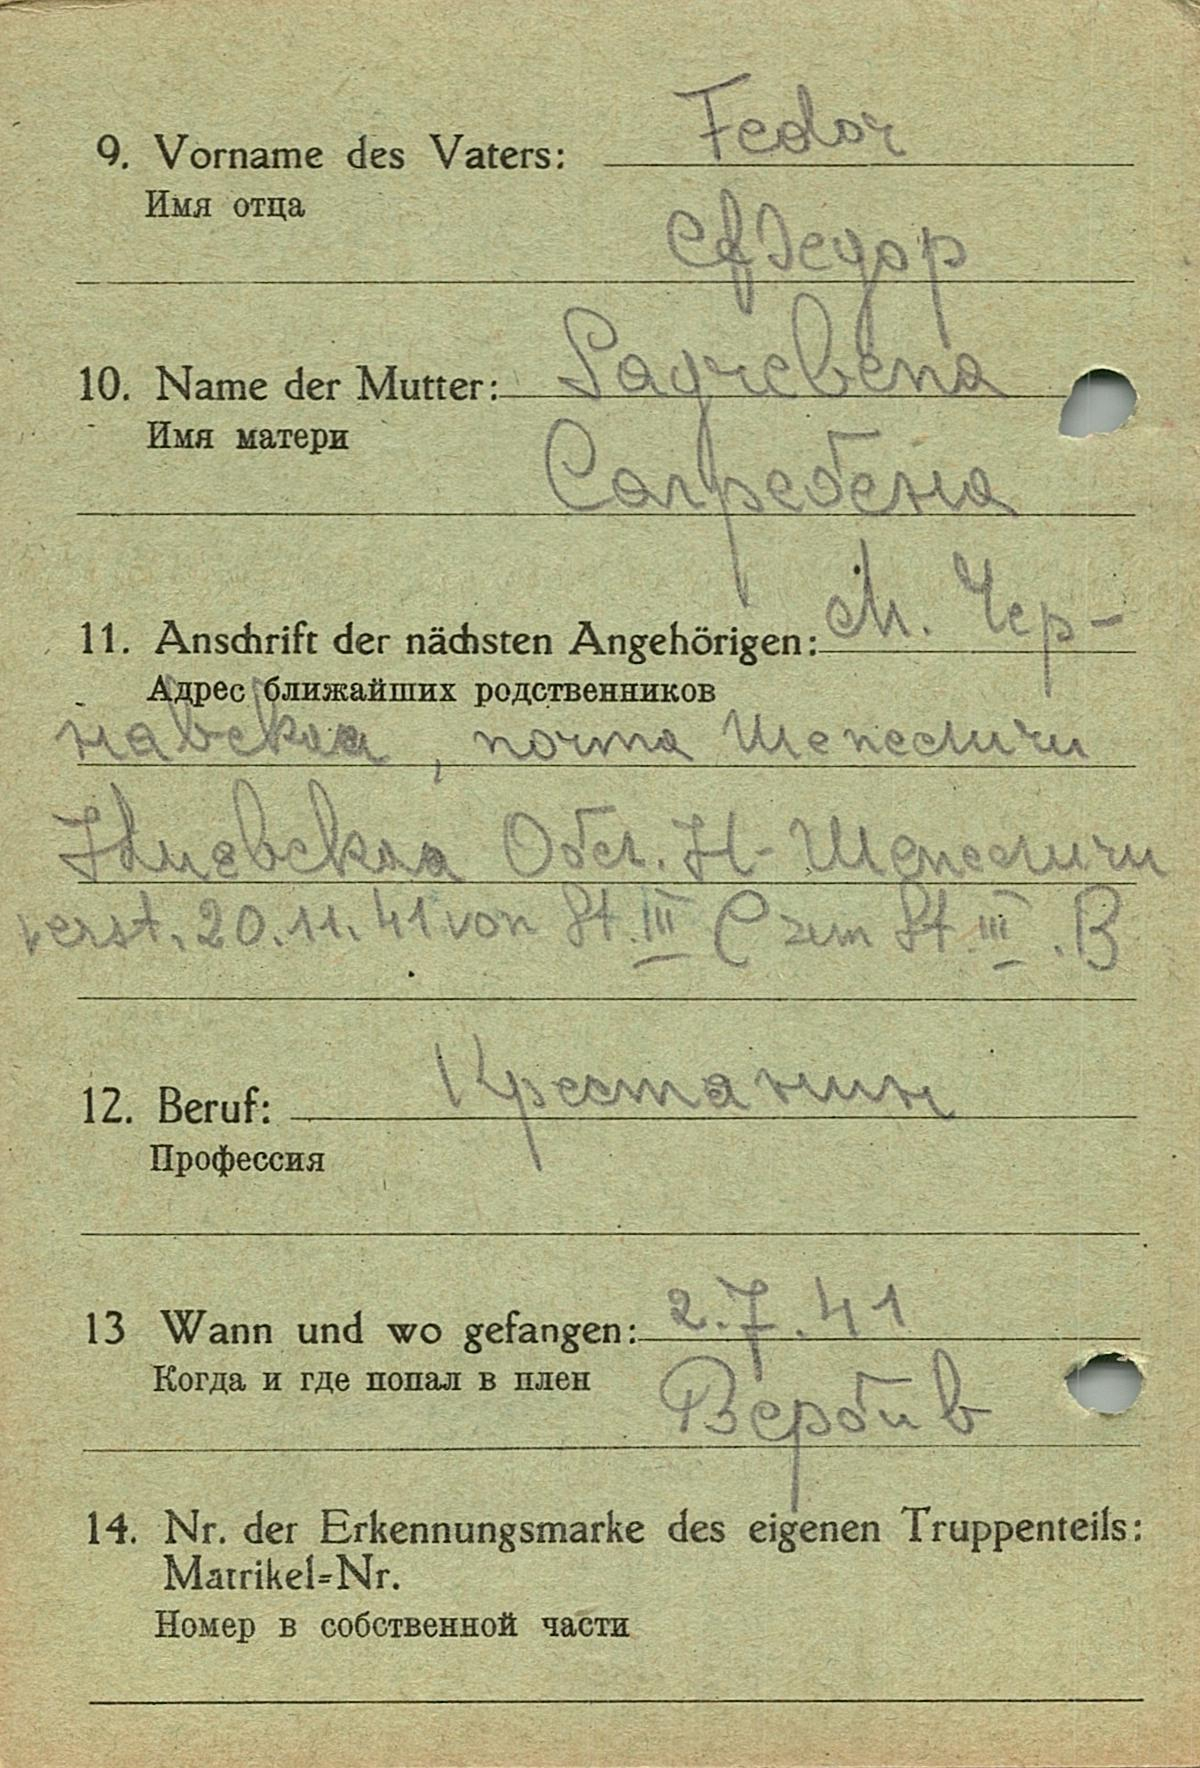 9. Vorname des Vaters: Fedor
Имя отца
Федор
10. Name der Mutter: Sagrebena
Имя матери
Сагребена
11. Anschrift der nächsten Angehörigen: М. Чер-
Адрес ближайших родственников
навская, почта Шепеличи
Киевская Обл. Н-Шепеличи
verst. 20.11.41 von St. III C zum St. III. B
12. Beruf: Крестанин
Профессия
13 Wann und wo gefangen: 2.7.41
Когда и где попал в плен
Вербив
14. Nr. der Erkennungsmarke des eigenen Truppenteils:
Matrikel=Nr.
Номер в собственной части